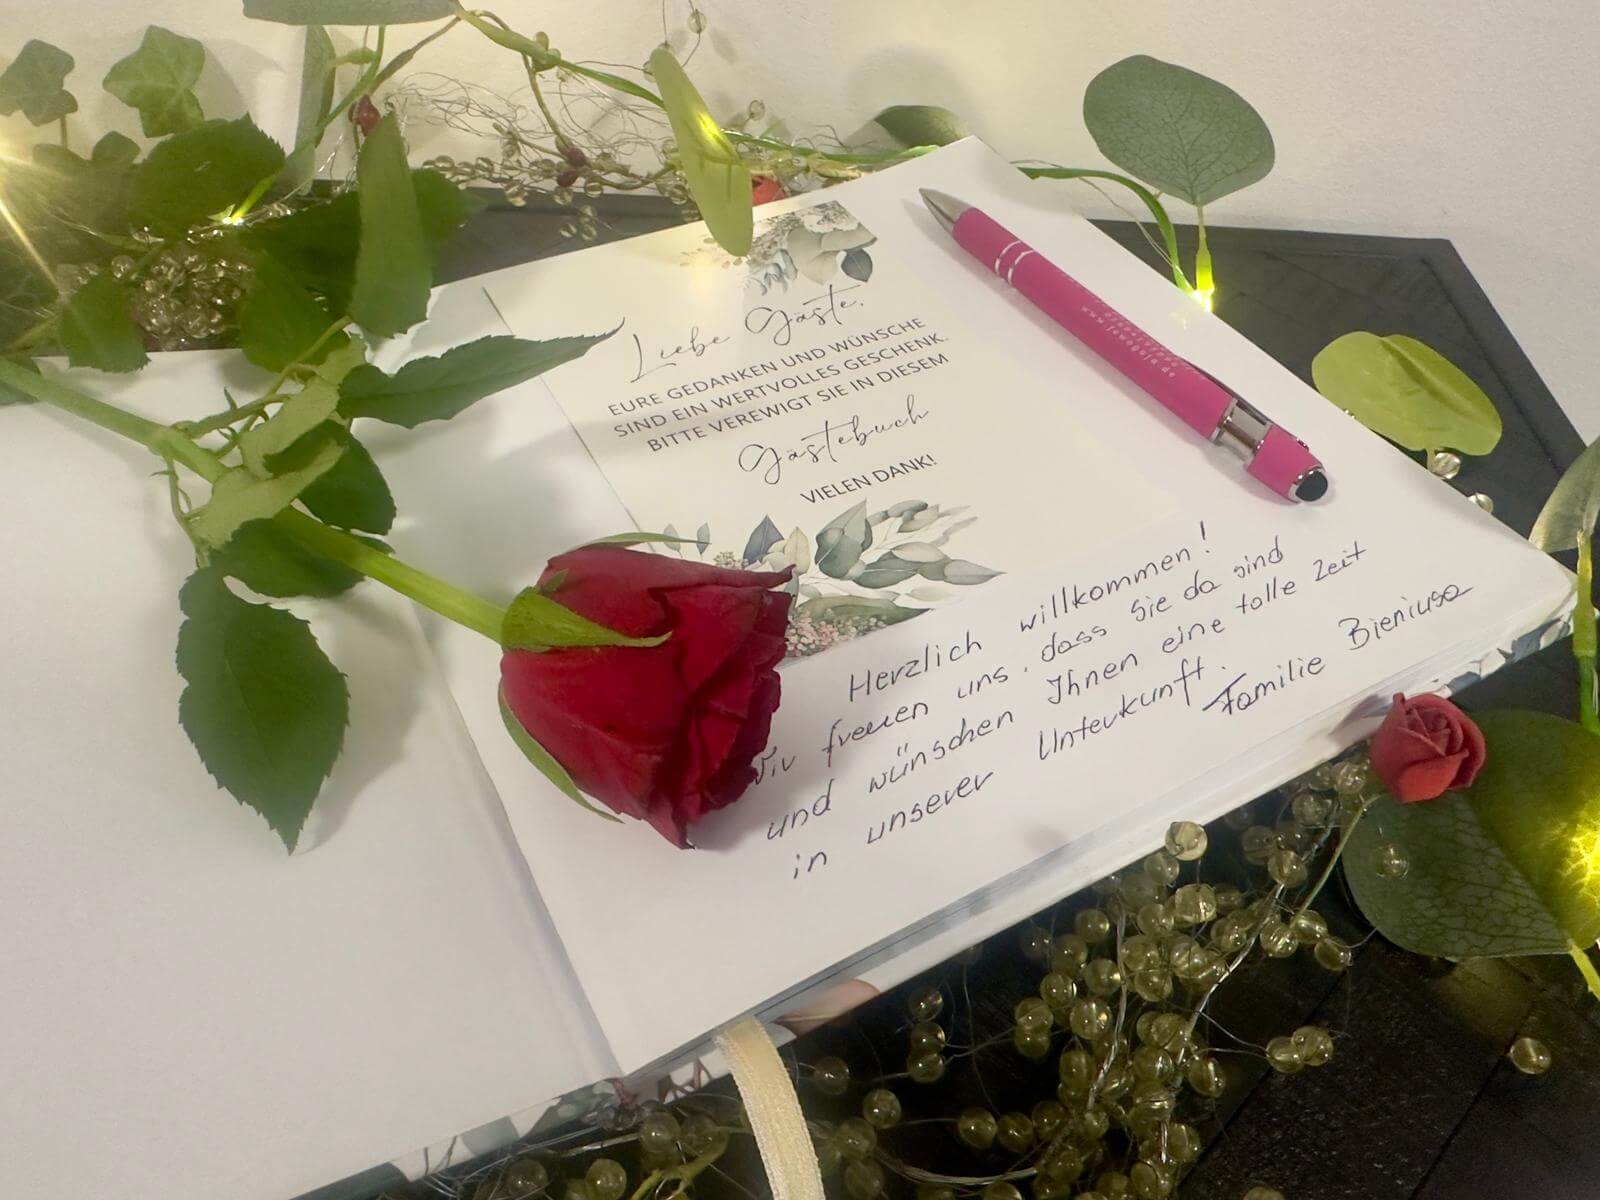 Liebe Gäste,
EURE GEDANKEN UND WÜNSCHE
SIND EIN WERTVOLLES GESCHENK.
BITTE VEREWIGT SIE IN DIESEM
Gästebuch
VIELEN DANK!
Herzlich willkommen!
Wir freuen uns, dass Sie da sind
und wünschen Ihnen eine tolle Zeit
in unserer Unterkunft.
Familie Bieniusa